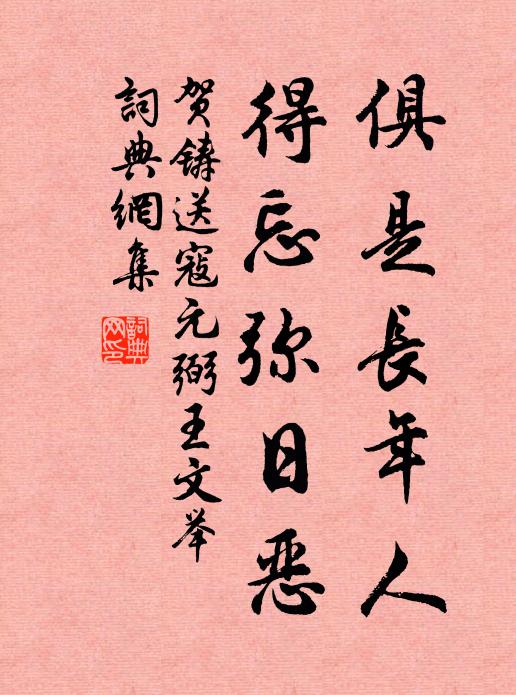 俱是長年人
得忘弥日惡
贺鑄送寇元弼王文举
詞典網集
詞典網印